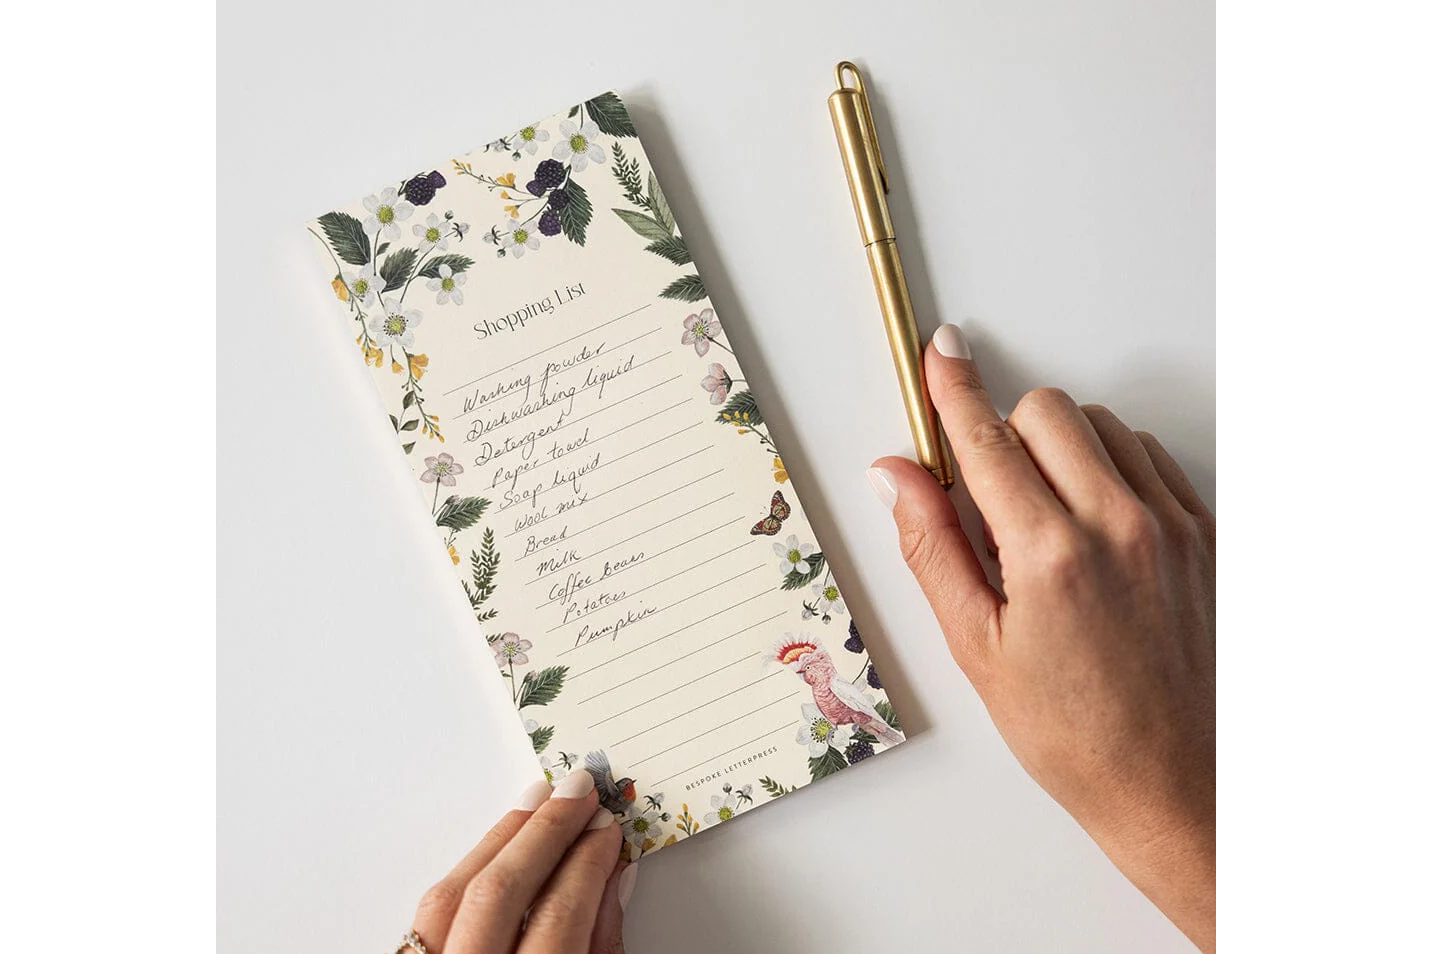 Shopping List
Washing powder
Dishwashing liquid
Detergent
Paper towel
Soap liquid
Wool mix
Bread
Milk
Coffee beans
Potatoes
Pumpkin
BESPOKE LETTERPRESS